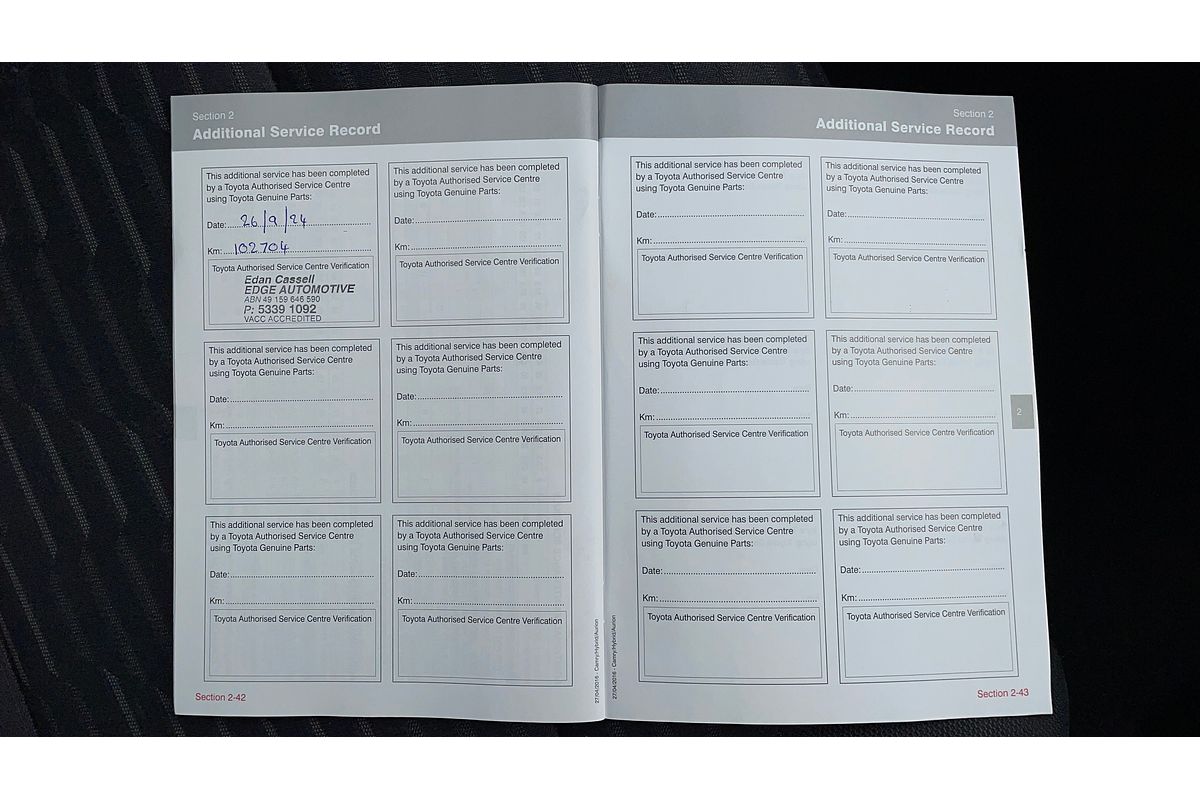 Section 2
Additional Service Record
This additional service has been completed
by a Toyota Authorised Service Centre
using Toyota Genuine Parts:
Date: 26/9/24
Km: 102704
Toyota Authorised Service Centre Verification
Edan Cassell
EDGE AUTOMOTIVE
ABN 49 159 646 590
P: 5339 1092
VACC ACCREDITED
This additional service has been completed
by a Toyota Authorised Service Centre
using Toyota Genuine Parts:
Date:
Km:
Toyota Authorised Service Centre Verification
This additional service has been completed
by a Toyota Authorised Service Centre
using Toyota Genuine Parts:
Date:
Km:
Toyota Authorised Service Centre Verification
This additional service has been completed
by a Toyota Authorised Service Centre
using Toyota Genuine Parts:
Date:
Km:
Toyota Authorised Service Centre Verification
This additional service has been completed
by a Toyota Authorised Service Centre
using Toyota Genuine Parts:
Date:
Km:
Toyota Authorised Service Centre Verification
This additional service has been completed
by a Toyota Authorised Service Centre
using Toyota Genuine Parts:
Date:
Km:
Toyota Authorised Service Centre Verification
Section 2-42
27/04/2016 - Camry/Hybrid/Aurion
Section 2
Additional Service Record
This additional service has been completed
by a Toyota Authorised Service Centre
using Toyota Genuine Parts:
Date:
Km:
Toyota Authorised Service Centre Verification
This additional service has been completed
by a Toyota Authorised Service Centre
using Toyota Genuine Parts:
Date:
Km:
Toyota Authorised Service Centre Verification
This additional service has been completed
by a Toyota Authorised Service Centre
using Toyota Genuine Parts:
Date:
Km:
Toyota Authorised Service Centre Verification
This additional service has been completed
by a Toyota Authorised Service Centre
using Toyota Genuine Parts:
Date:
Km:
Toyota Authorised Service Centre Verification
2
This additional service has been completed
by a Toyota Authorised Service Centre
using Toyota Genuine Parts:
Date:
Km:
Toyota Authorised Service Centre Verification
This additional service has been completed
by a Toyota Authorised Service Centre
using Toyota Genuine Parts:
Date:
Km:
Toyota Authorised Service Centre Verification
27/04/2016 - Camry/Hybrid/Aurion
Section 2-43